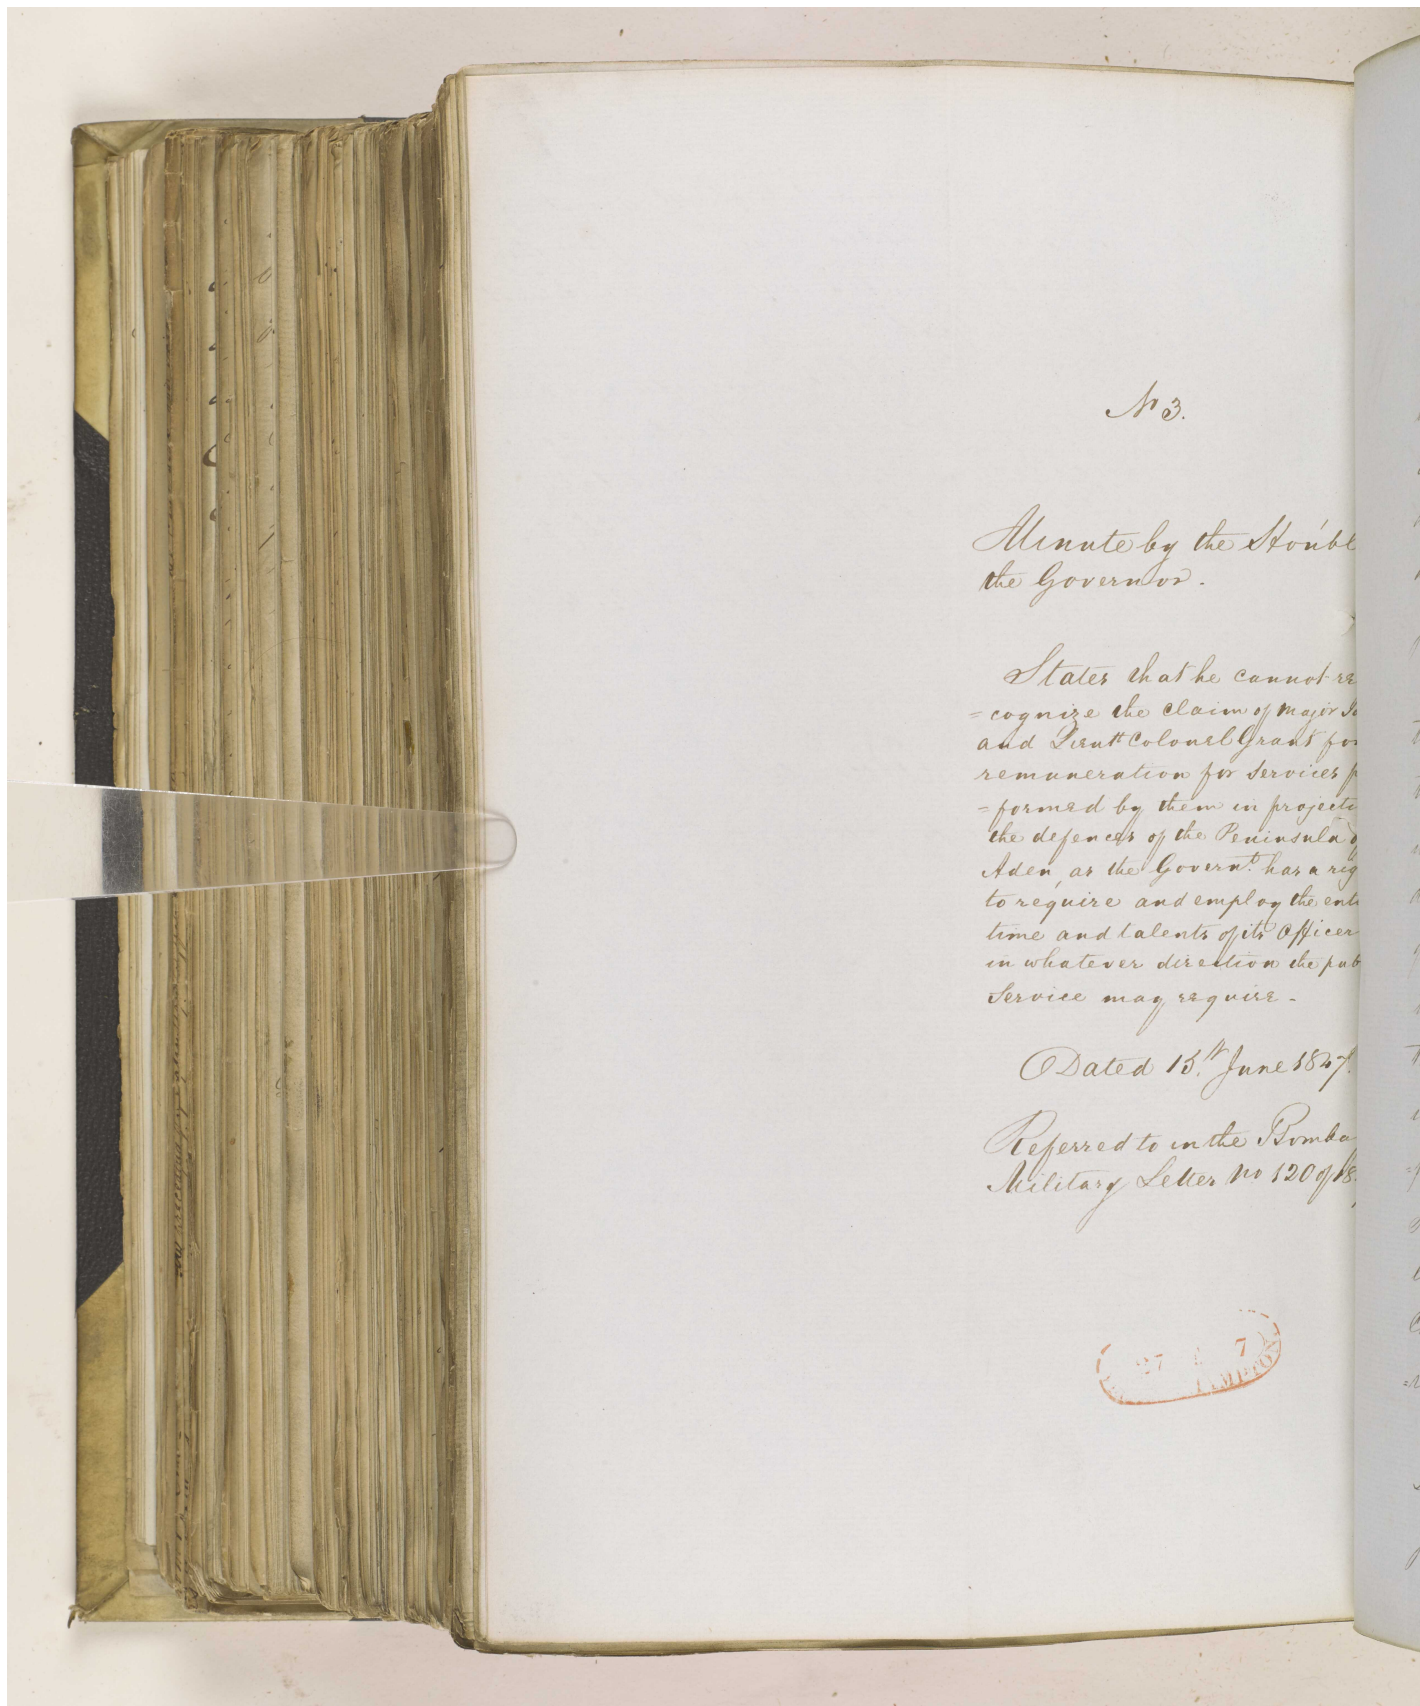 No 3.
Minute by the Hon'bl
the Governor.
States that he cannot re
=cognize the claim of Major
and Lieutt Colonel Grant for
remuneration for services p
=formed by them in projecti
the defences of the Peninsula o
Aden, as the Governt. has a rig
to require and employ the enti
time and talents of its Officer
in whatever direction the pub
Service may require -
Dated 15th June 1847.
Referred to in the Bomba
Military Letter No 120 of 18
27 7
AMPTON